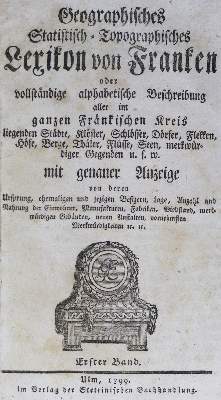 Geographisches
Statistisch-Topographisches
Lexikon von Franken
oder
vollständige alphabetische Beschreibung
aller im
ganzen Fränkischen Kreis
liegenden Städte, Klöster, Schlösser, Dörfer, Flekken,
Höfe, Berge, Thäler, Flüsse, Seen, merkwür-
diger Gegenden u. s. w.
mit genauer Anzeige
von deren
Ursprung, ehemaligen und jezigen Besizern, Lage, Anzahl und
Nahrung der Einwohner, Manufakturen, Fabriken, Viehstand, merk-
würdigen Gebäuden, neuen Anstalten, vornehmsten
Merkwürdigkeiten ec. ec.
Erster Band.
Ulm, 1799.
im Verlag der Stettinischen Buchhandlung.